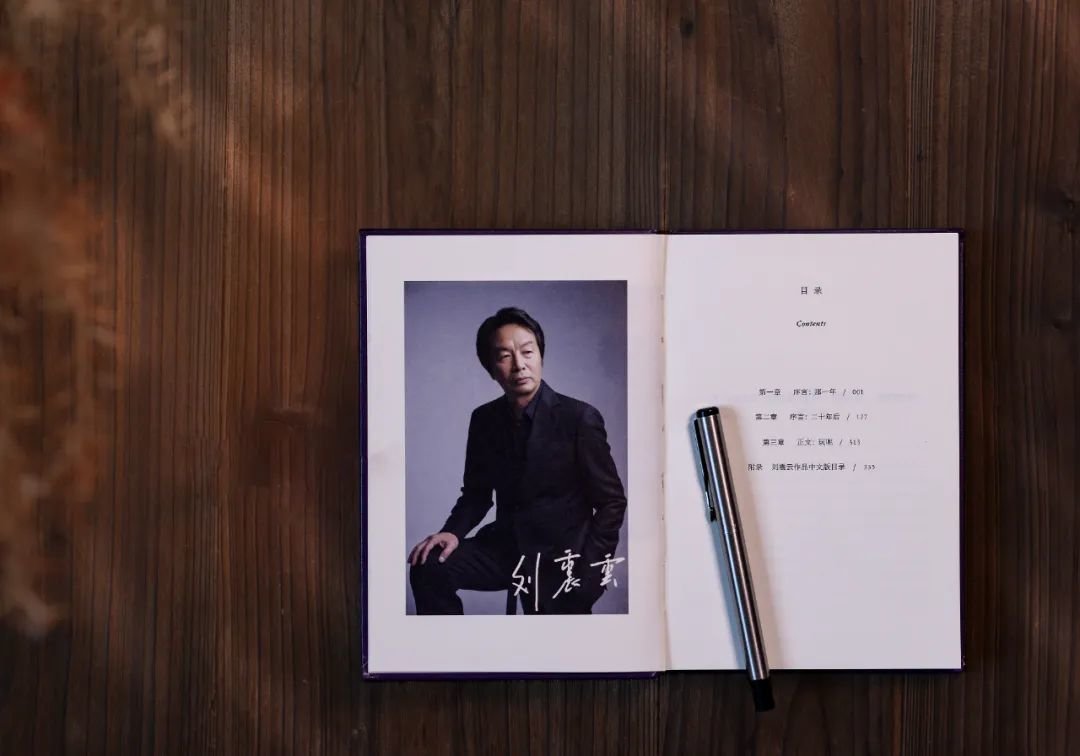 刘震雲
目 录
Contents
第一章 序言：那一年 / 001
第二章 序言：二十年后 / 127
第三章 正文：玩呢 /
附录 刘震云作品中文版目录 /